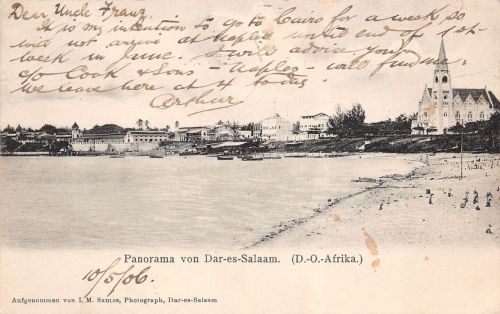 Dear Uncle Franz
It is my intention to go to Cairo for a week so
will not arrive at Naples until end of 1st
week in June. I will advise you
c/o Cook & Sons - Naples - will find me.
We leave here at 4 today.
Arthur
Panorama von Dar-es-Salaam. (D.-O.-Afrika.)
10/5/06
Aufgenommen von I. M. Santos, Photograph, Dar-es-Salaam